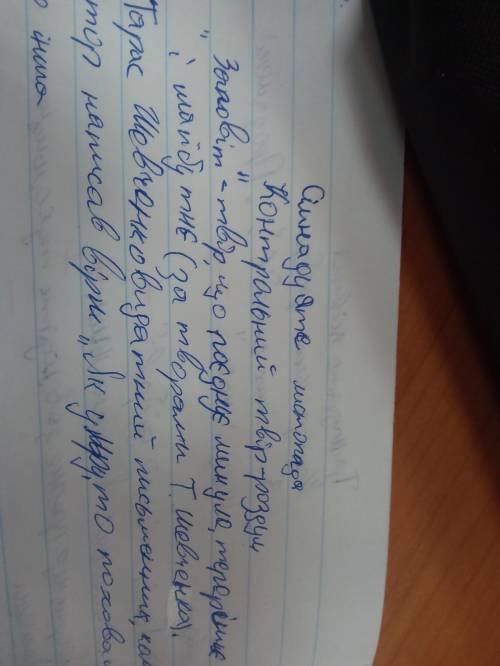 Сімнадцяте листопада
Контрольний твір-роздум
"Заповіт" - твір, що поєднує минуле, теперішнє
і майбутнє (за творами Т. Шевченка).
Тарас Шевченко видатний письменник,
написав вірш "Як умру, то похова
інша